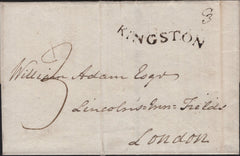 KINGSTON
3
William Adam Esqr
Lincoln's Inn Fields
London